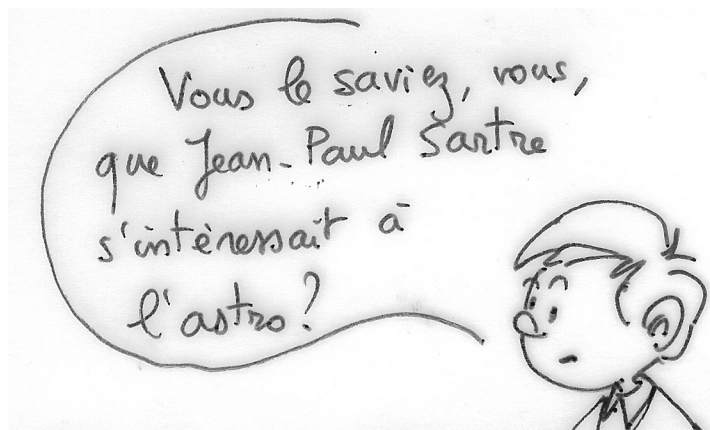 Vous le saviez, vous,
que Jean-Paul Sartre
s'intéressait à
l'astro?